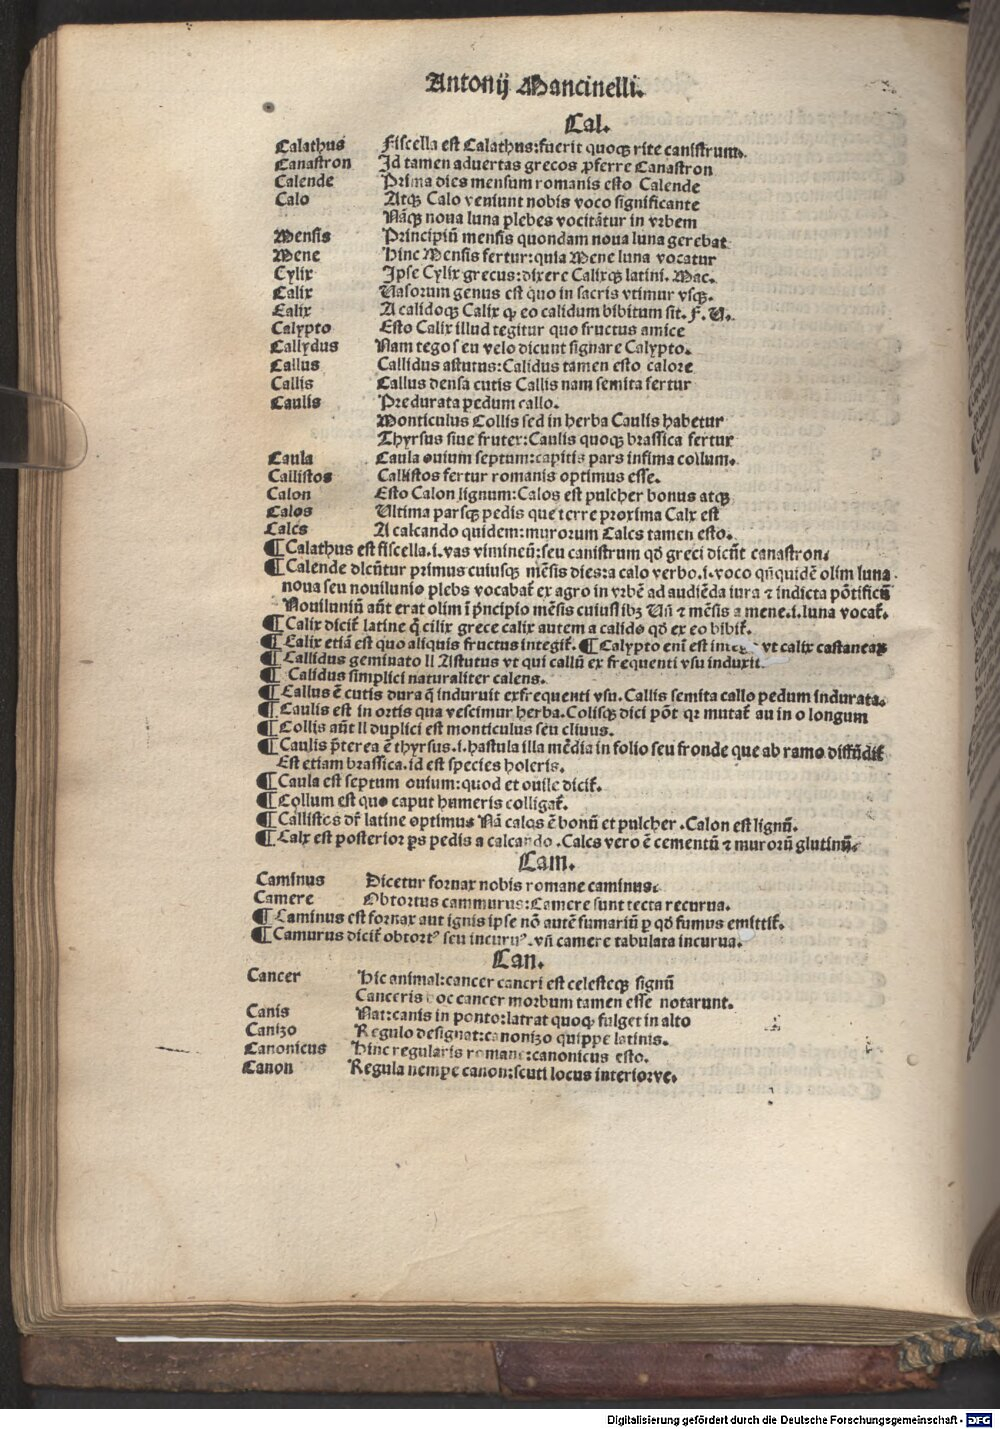 Antonij Mancinelli.
Cal.
Calathus Fiscella est Calathus:fuerit quoqꝫ rite canistrum.
Canastron Id tamen aduertas grecos ꝓferre Canastron
Calende Prima dies mensum romanis esto Calende
Calo Atqꝫ Calo veniunt nobis voco significante
Nāqꝫ noua luna plebes vocitātur in vrbem
Mensis Principiū mensis quondam noua luna gerebat
Mene Hinc Mensis fertur:quia Mene luna vocatur
Cylix Ipse Cylix grecus:dixere Calixqꝫ latini. Mac.
Calix Uasorum genus est quo in sacris vtimur vsqꝫ.
Calix A calidoqꝫ Calix qꝫ eo calidum bibitum sit. F.U.
Calypto Esto Calix illud tegitur quo fructus amice
Callydus Nam tego seu velo dicunt signare Calypto.
Callus Callidus astutus:Calidus tamen esto calore
Callis Callus densa cutis Callis nam semita fertur
Caulis Predurata pedum callo.
Monticulus Collis sed in herba Caulis habetur
Thyrsus siue frutex:Caulis quoqꝫ brassica fertur
Caula Caula ouium septum:capitis pars infima collum.
Callistos Callistos fertur romanis optimus esse.
Calon Esto Calon lignum:Calos est pulcher bonus atqꝫ
Calos Ultima parsqꝫ pedis que terre proxima Calx est
Calcs A calcando quidem:murorum Calcs tamen esto.
¶ Calathus est fiscella.i.vas vimineū:seu canistrum qd̄ greci dicūt canastron.
¶ Calende dicūtur primus cuiusqꝫ mēsis dies:a calo verbo.i.voco qn̄quidē olim luna
noua seu nouilunio plebs vocabat᷑ ex agro in vrbē ad audiēda iura ⁊ indicta pōtificū
Nouiluniū aūt erat olim ī pꝛ̄ncipio mēsis cuiuslibꝫ Uñ ⁊ mēsis a mene.i.luna vocat᷑.
¶ Calix dicit᷑ latine q̄ cilix grece calix autem a calido qd̄ ex eo bibit᷑.
¶ Calix etiā est quo aliquis fructus integit᷑. ¶ Calypto enī est vt calix castaneax
¶ Callidus geminato ll Astutus vt qui callū ex frequenti vsu induxit.
¶ Calidus simplici naturaliter calens.
¶ Callus ē cutis dura q̄ induruit exfrequenti vsu.Callis semita callo pedum indurata.
¶ Caulis est in ortis qua vescimur herba.Colisqꝫ dici pōt qꝛ mutat᷑ au in o longum
¶ Collis aūt ll duplici est monticulus seu cliuus.
¶ Caulis p̄terea ē thyrsus.i.hastula illa mēdia in folio seu fronde que ab ramo diffūdit᷑
Est etiam brassica.id est species holeris.
¶ Caula est septum ouium:quod et ouile dicit᷑.
¶ Collum est quo caput humeris colligat᷑.
¶ Callistos dr̄ latine optimus Nā calos ē bonū et pulcher .Calon est lignū.
¶ Calx est posterior ꝑs pedis a calcando .Calcs vero ē cementū ⁊ murorū glutinū.
Cam.
Caminus Dicetur fornax nobis romane caminus.
Camere Obtortus cammurus:Camere sunt tecta recurua.
¶ Caminus est fornax aut ignis ipse nō autē fumariū p qd̄ fumus emittit᷑.
¶ Camurus dicit᷑ obtortꝰ seu incuruꝰ.vñ camere tabulata incurua.
Can.
Cancer Hic animal:cancer cancri est celesteqꝫ signū
Canceris hoc cancer morbum tamen esse notarunt.
Canis Nat:canis in ponto:latrat quoqꝫ fulget in alto
Canizo Regulo designat:canonizo quippe latinis.
Canonicus Hinc regularis romane:canonicus esto.
Canon Regula nempe canon:scuti locus interiorve.
Digitalisierung gefördert durch die Deutsche Forschungsgemeinschaft - DFG